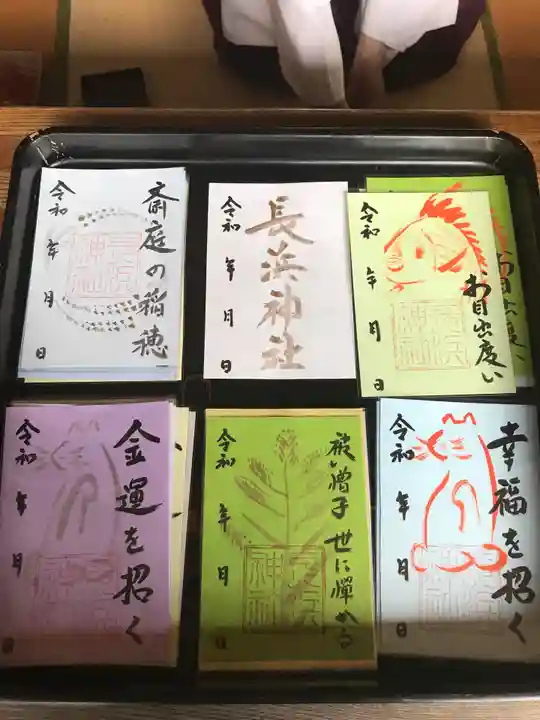 斎庭の稲穂
令和 年 月 日
長浜神社
令和 年 月 日
お目出度い
令和 年 月 日
お目出度い
金運を招く
令和 年 月 日
被憎子世に憚かる
令和 年 月 日
幸福を招く
令和 年 月 日